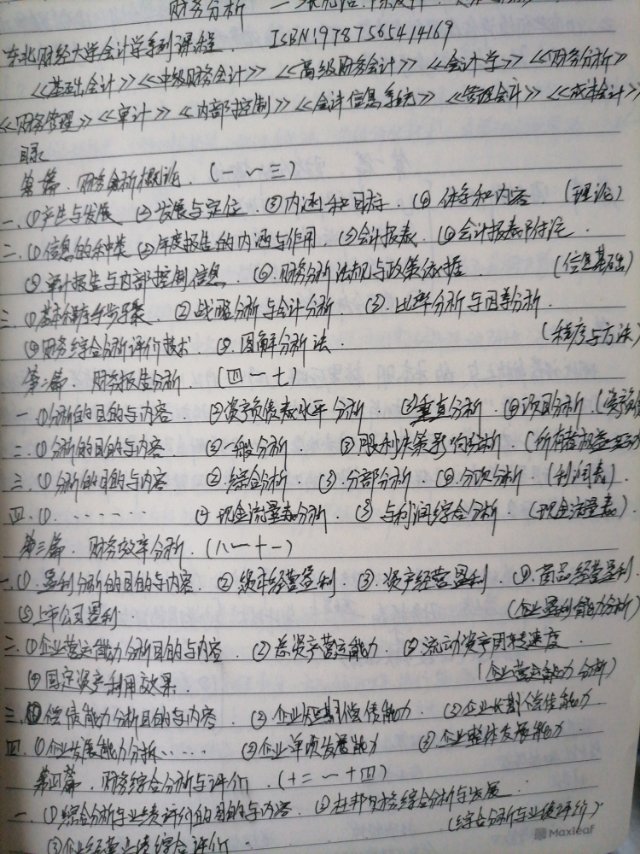 财务分析
东北财经大学会计学系列课程 ISBN 9787565414169
《基础会计》《中级财务会计》《高级财务会计》《会计学》《财务分析》
《财务管理》《审计》《内部控制》《会计信息系统》《管理会计》《成本会计》
目录
第一篇．财务分析概论．(一～三)
一．①产生与发展 ②发展与定位．③内涵和目标．④体系和内容 (理论)
二．①信息的种类 ②年度报告的内涵与作用．③会计报表．④会计报表附注．
⑤审计报告与内部控制信息．⑥财务分析法规与政策依据．(信息基础)
三．①基本程序与步骤．②战略分析与会计分析．③比率分析与因素分析．
④财务综合分析评价技术．⑤图解分析法．(程序与方法)
第二篇．财务报告分析．(四一七)
一．①分析的目的与内容 ②资产负债表水平分析．③垂直分析．④项目分析．(资产负债
二．①分析的目的与内容 ②一般分析．③股利决策影响分析．(所有者权益变动
三．①分析的目的与内容 ②综合分析．③分部分析．④分项分析．(利润表)．
四．①．…… ②现金流量表分析．③与利润综合分析 (现金流量表)．
第三篇．财务效率分析．(八一十一)
一．①盈利分析的目的与内容．②资本经营盈利．③资产经营盈利．④商品经营盈利．
⑤上市公司盈利．(企业盈利能力分析)
二．①企业营运能力分析目的与内容．②总资产营运能力．③流动资产周转速度．
④固定资产利用效果．(企业营运能力分析)
三．①偿债能力分析目的与内容．②企业短期偿债能力．③企业长期偿债能力．
四．①企业发展能力分析……②企业单项发展能力 ③企业整体发展能力．
第四篇．财务综合分析与评价．(十二一十四)
一．①综合分析与业绩评价的目的与内容．②杜邦财务综合分析与发展．
③企业经营业绩综合评价．(综合分析与业绩评价)
Maxleaf